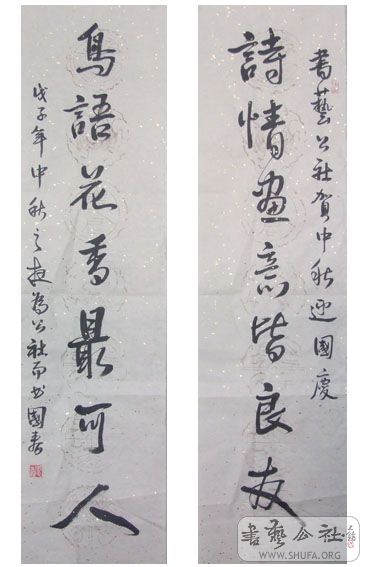 書藝公社賀中秋迎國慶
詩情畫意皆良友
鳥語花香最可人
戊子年中秋之夜為公社而書國春
書艺公社
WWW.SHUFA.ORG